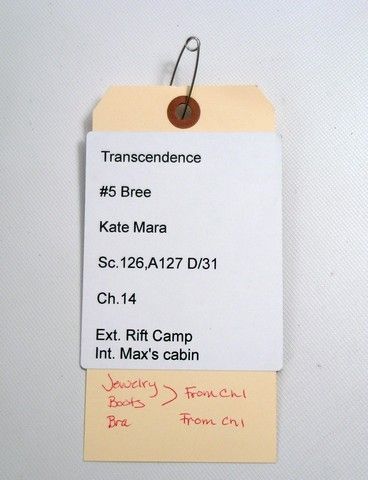 Transcendence
#5 Bree
Kate Mara
Sc.126,A127 D/31
Ch.14
Ext. Rift Camp
Int. Max's cabin
Jewelry
Boots ) From Ch1
Bra From Ch1